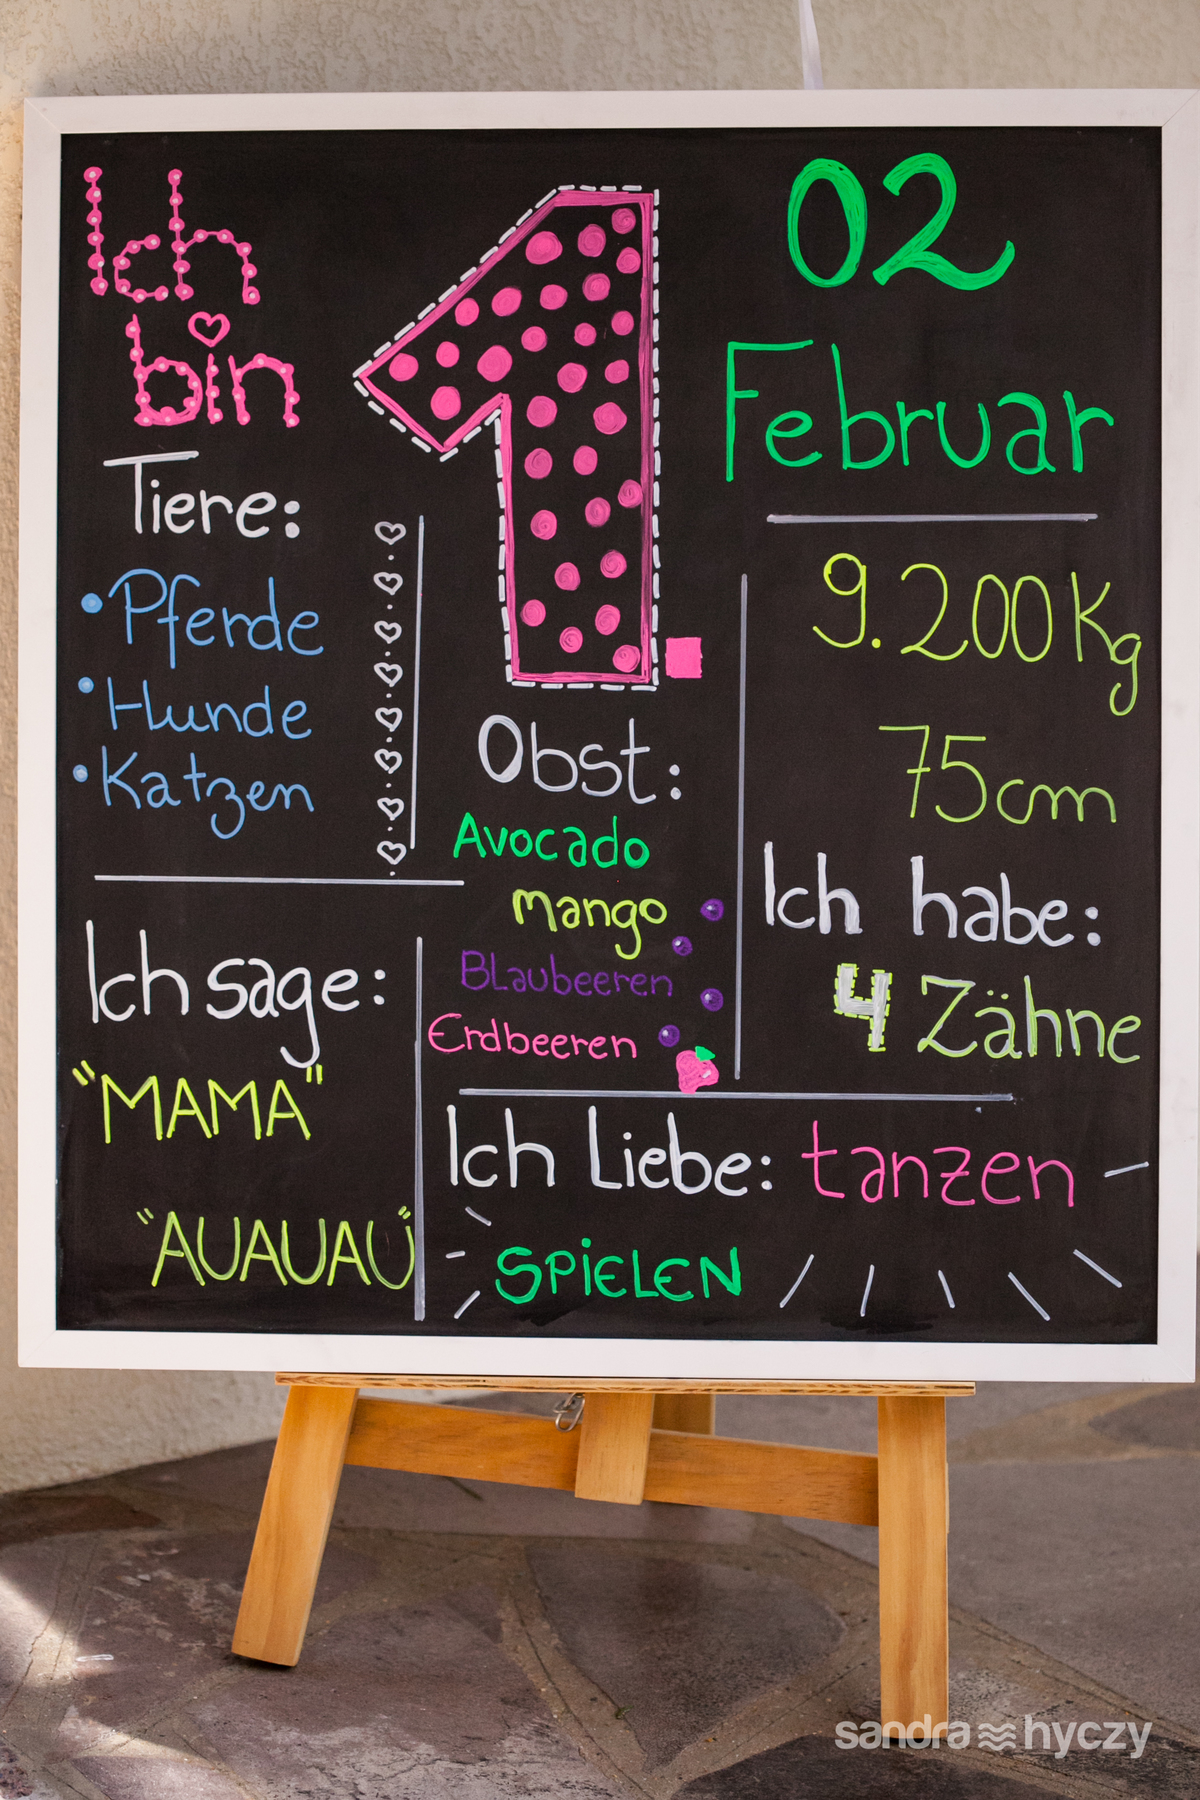 Ich
bin
1.
02
Februar
Tiere:
• Pferde
• Hunde
• Katzen
9.200 Kg
75cm
Obst:
Avocado
mango
BLaubeeren
Erdbeeren
Ich habe:
4 Zähne
Ich sage:
"MAMA"
"AUAUAU"
Ich Liebe: tanzen
SPiELEN
sandra hyczy